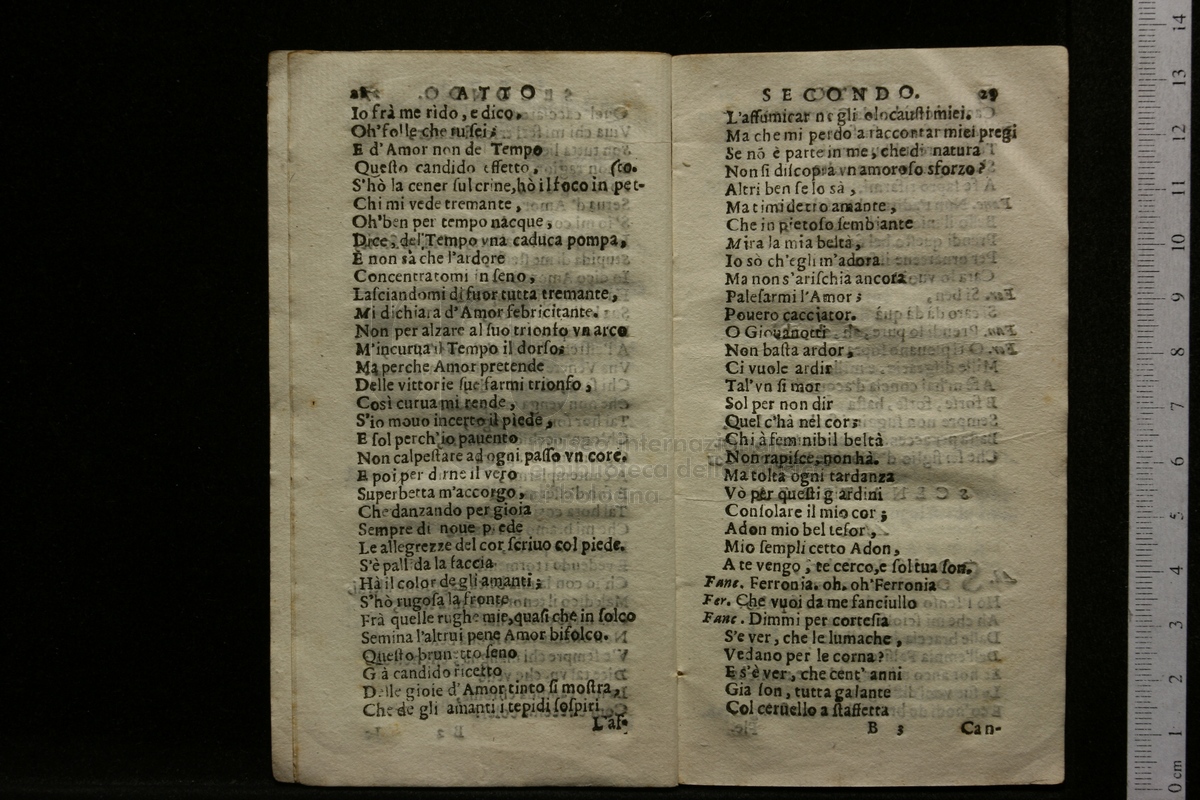 28 ATTO
Io frà me rido, e dico.
Oh'folle che tu sei;
E d'Amor non de Tempo
Questo candido effetto, (to.
S'hò la cener sul crine, hò il foco in pet-
Chi mi vede tremante,
Oh'ben per tempo nacque,
Dice, del Tempo vna caduca pompa,
E non sà che l'ardore
Concentratomi in seno,
Lasciandomi di fuor tutta tremante,
Mi dichiara d'Amor febricitante.
Non per alzare al suo trionfo vn arco
M'incurua il Tempo il dorso;
Ma perche Amor pretende
Delle vittorie sue farmi trionfo,
Così curua mi rende,
S'io mouo incerto il piede,
E sol perch'io pauento
Non calpestare ad ogni passo vn core.
E poi per dirne il vero
Superbetta m'accorgo,
Che danzando per gioia
Sempre di noue piede
Le allegrezze del cor scriuo col piede.
S'è pallida la faccia
Hà il color de gli amanti;
S'hò rugosa la fronte
Frà quelle rughe mie, quasi che in solco
Semina l'altrui pene Amor bifolco.
Questo brunetto seno
Già candido ricetto
Delle gioie d'Amor tinto si mostra,
Che de gli amanti i tepidi sospiri
L'af-
SECONDO. 29
L'affumicar ne gli olocausti miei.
Ma che mi perdo a raccontar miei pregi
Se nõ è parte in me, che di natura
Non si discopra vn amoroso sforzo?
Altri ben se lo sà,
Ma timidetto amante,
Che in pietoso sembiante
Mira la mia beltà,
Io sò ch'egli m'adora
Ma non s'arischia ancora
Palesarmi l'Amor;
Pouero cacciator.
O Giouanotti
Non basta ardor,
Ci vuole ardir
Tal'vn si mor
Sol per non dir
Quel c'hà nel cor;
Chi à feminibil beltà
Non rapisce, non hà.
Ma tolta ogni tardanza
Vò per questi giardini
Consolare il mio cor;
Adon mio bel tesor,
Mio semplicetto Adon,
A te vengo, te cerco, e sol tua son.
Fanc. Ferronia. oh. oh'Ferronia
Fer. Che vuoi da me fanciullo
Fanc. Dimmi per cortesia
S'e ver, che le lumache,
Vedano per le corna?
E s'è ver, che cent'anni
Gia son, tutta galante
Col ceruello a staffetta
B 3 Can-